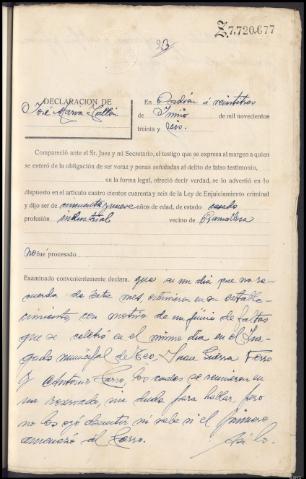 Z7.720.677
DECLARACION DE
José Maria
En Padrón á veintitres
de Junio de mil novecientos
treinta y seis.
Compareció ante el Sr. Juez y mí Secretario, el testigo que se expresa al margen a quien
se enteró de la obligación de ser veraz y penas señaladas al delito de falso testimonio,
en la forma legal, ofreció decir verdad, se le advertió en lo
dispuesto en el artículo cuatro cientos cuarenta y seis de la Ley de Enjuiciamiento criminal
y dijo ser de cincuenta y nueve años de edad, de estado casado
profesión industrial vecino de
no fué procesado
Examinado convenientemente declara: que en un dia que no re-
cuerda de este mes, estuvieron en su estable-
cimiento con motivo de un juicio de faltas
que se celebró en el mismo dia en el Juz-
gado municipal de Teo, Juan Ferro
y Antonio los cuales se reunieron en
un reservado, sin duda para hablar, pero
no les oyó discutir ni sabe si el primero
amenazó al